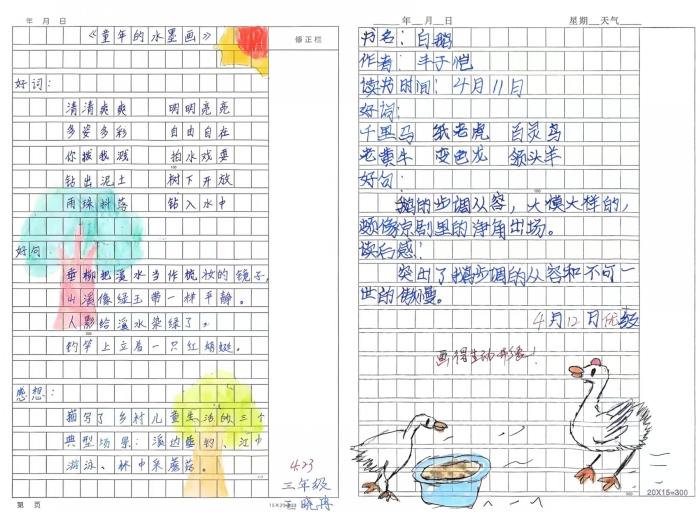 年 月 日
修正栏
《童年的水墨画》
好词:
清清爽爽 明明亮亮
多姿多彩 自由自在
你拨我溅 拍水戏耍
钻出泥土 树下开放
雨珠斜落 钻入水中
100
好句:
垂柳把溪水当作梳妆的镜子,
山溪像绿玉带一样平静。
人影给溪水染绿了,
200
钓竿上立着一只红蜻蜓。
感想:
描写了乡村儿童生活的三个
典型场景:溪边垂钓、江中
游泳、林中采蘑菇。
4.23
三年级
第 页
年 月 日 星期 天气
书名:白鹅
作者:丰子恺
读书时间:4月11日
好词:
千里马 纸老虎 百灵鸟
老黄牛 变色龙 领头羊
100
好句:
鹅的步调从容,大模大样的,
颇像京剧里的净角出场。
读后感:
突出了鹅步调的从容和不可一
世的傲慢。
4月12日 优 级
200
画得生动形象!
300
20X15=300